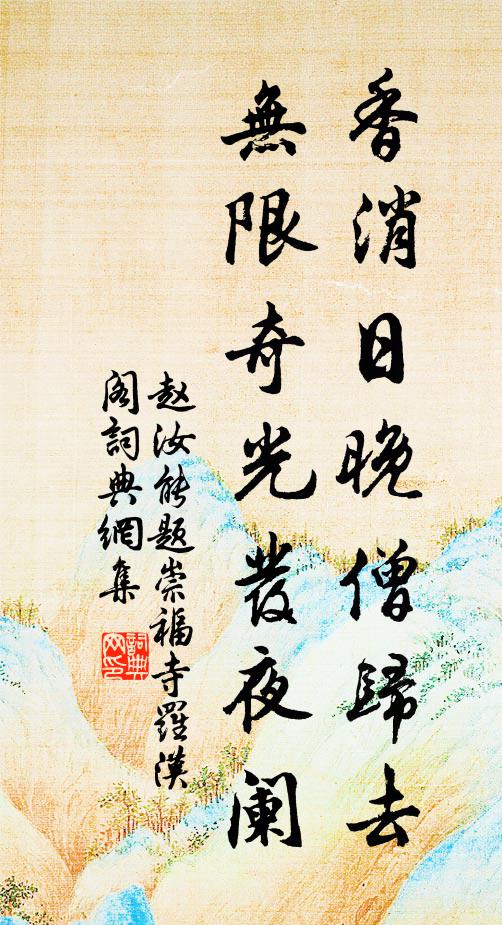 香消日晚僧歸去
無限奇光發夜阑
赵汝能题崇福寺羅漢
阁詞典網集
詞典